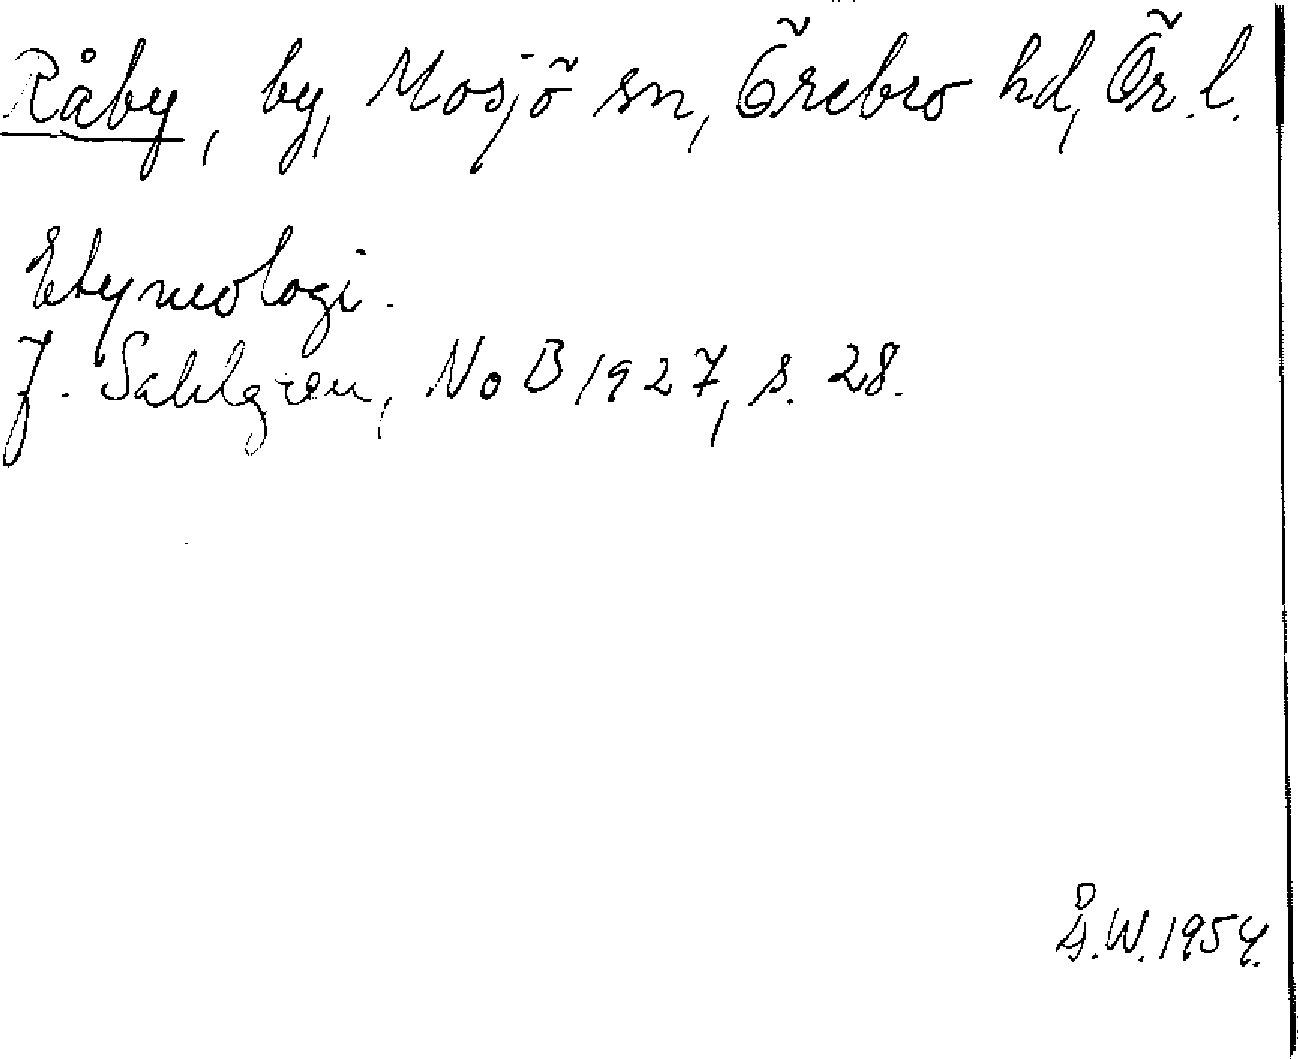 Råby, by, Mosjö sn, Örebro hd, Ör. l.
Etymologi.
J. Sahlgren, NoB 1927, s. 28.
Å.W. 1954.